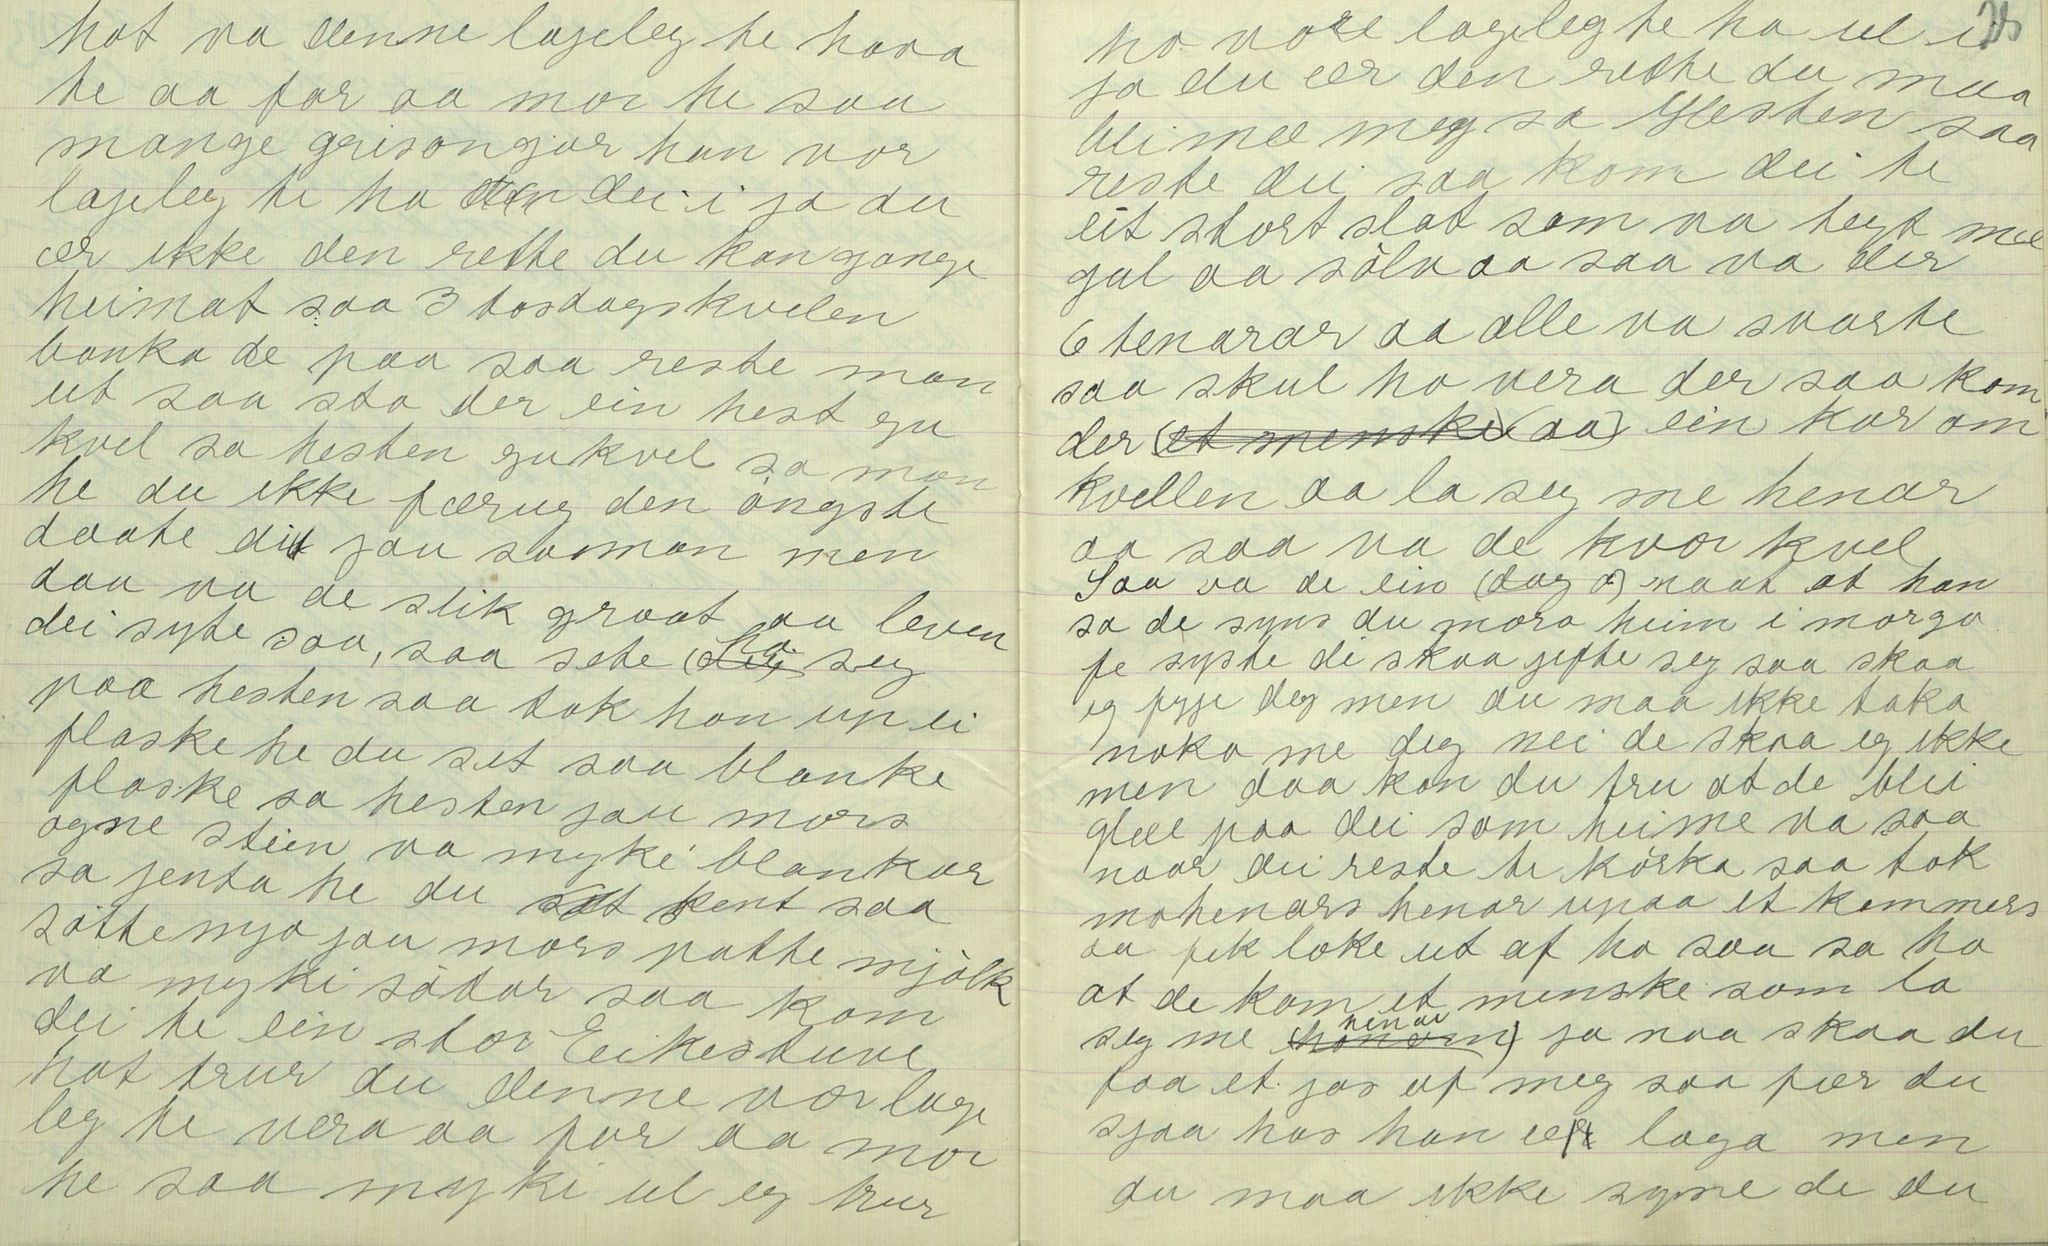 hot va denne lageleg te hava
te aa far aa mor he saa
mange grisongjar han vor
lageleg te ha den dei i ja du
ær ikke den rette du kan gange
heimat saa 3 tosdagskvelen
banka de paa saa reste man
ut saa sto der ein hest gu
kvel sa hesten gukvel sa man
he du ikke færug den ȯngste
daate dit jau saa man men
daa va de slik graat aa leven
dei syte saa, saa sete (dei) ho seg
paa hesten saa tok han up ei
flaske he du set saa blanke
flaske sa hesten jau mors
ogne steen va myki blankar
sa jenta he du set kent saa
sȯtte mjo jau mors patte mjȯlk
va myki sȯdar saa kom
dei te ein stor Eikestuve
hot trur du denne vor lage
leg te vera aa far aa mor
he saa myki ul eg trur
ho vore lageleg te ha ul i
ja du ær den rette du maa
bli mæ meg sa Hesten saa
reste dei saa kom dei te
eit stort slot som va tegt mæ
gul aa sȯlv aa saa va der
6 tenarar aa alle va svarte
saa skul ho vera der saa kom
der (et menske) (aa) ein kar om
kvellen aa la seg me henar
aa saa va de kvar kvel
Saa va de ein (dag o) naat at han
sa de syns du mora heim i morgo
fe syste di skaa jefte seg saa skaa
eg fyje deg men du maa ikke taka
noko me deg nei de skaa eg ikke
men daa kan du tru at de blei
glæe paa dei som heime va saa
naar dei reste te kȯrka saa tok
mohenars henar upaa et kammers
aa fek loke ut af ho saa sa ho
at de kom et menske som la
seg me (honom) henar ja naa skaa du
faa et jos af meg saa fær du
sjaa hos han ær laga men
du maa ikke syne de du